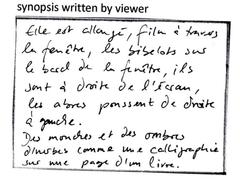 synopsis written by viewer
Elle est allongé, film à travers
la fenêtre, les bibelots sur
le bord de la fenêtre, ils
sont à droite de l'écran,
les abres poussent de droite
à gauche.
Des monches et des ombres
d'herbes comme une calligraphie
sur une page d'un livre.